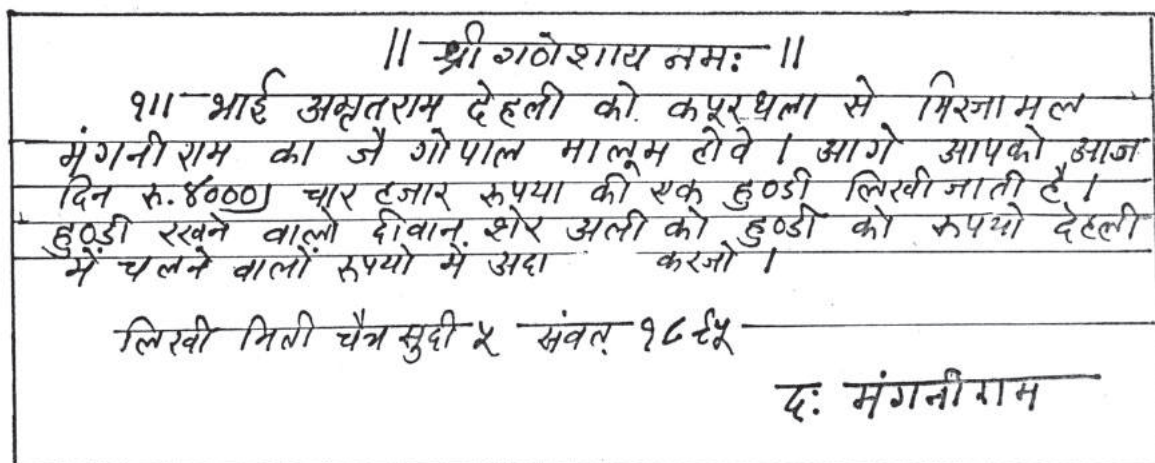 ॥ श्री गणेशाय नमः ॥
१॥ भाई अमृतराम देहली को कपूरथला से मिरजामल
मंगनीराम का जै गोपाल मालूम होवे । आगे आपको आज
दिन रु. ४०००) चार हजार रूपया की एक हुण्डी लिखी जाती है ।
हुण्डी रखने वालो दीवान शेर अली को हुण्डी को रूपयो देहली
में चलने वालों रूपयो में अदा करजो ।
लिखी मिती चैत्र सुदी ५ संवत् १८९५
दः मंगनीराम